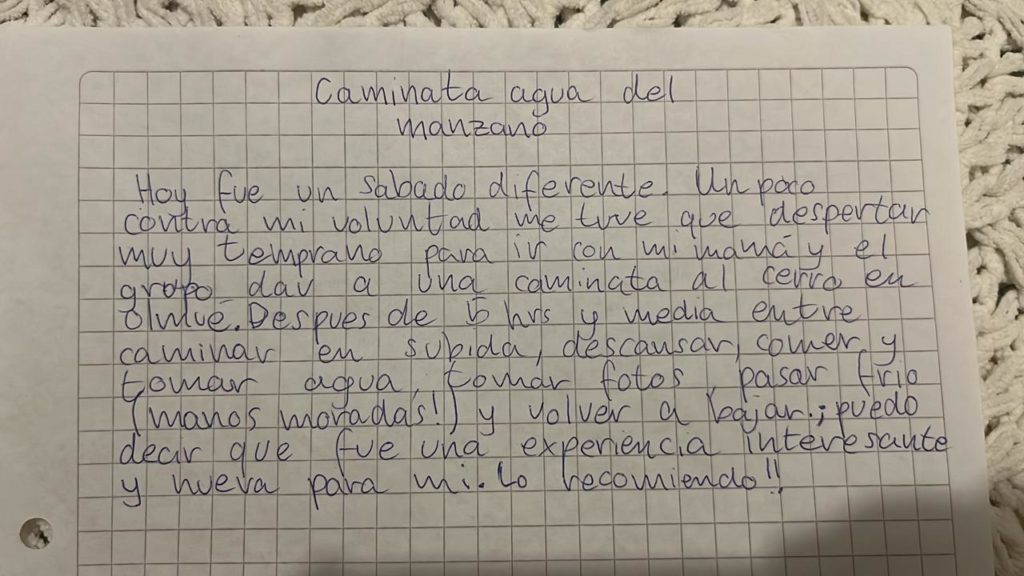 Caminata agua del
manzano
Hoy fue un sabado diferente. Un poco
contra mi voluntad me tuve que despertar
muy temprano para ir con mi mamá y el
grupo dav a una caminata al cerro en
Olmué. Despues de 5 hrs y media entre
caminar en subida, descansar, comer y
tomar agua, tomar fotos, pasar frio
(manos moradas!) y volver a bajar.; puedo
decir que fue una experiencia interesante
y nueva para mi. Lo recomiendo!!